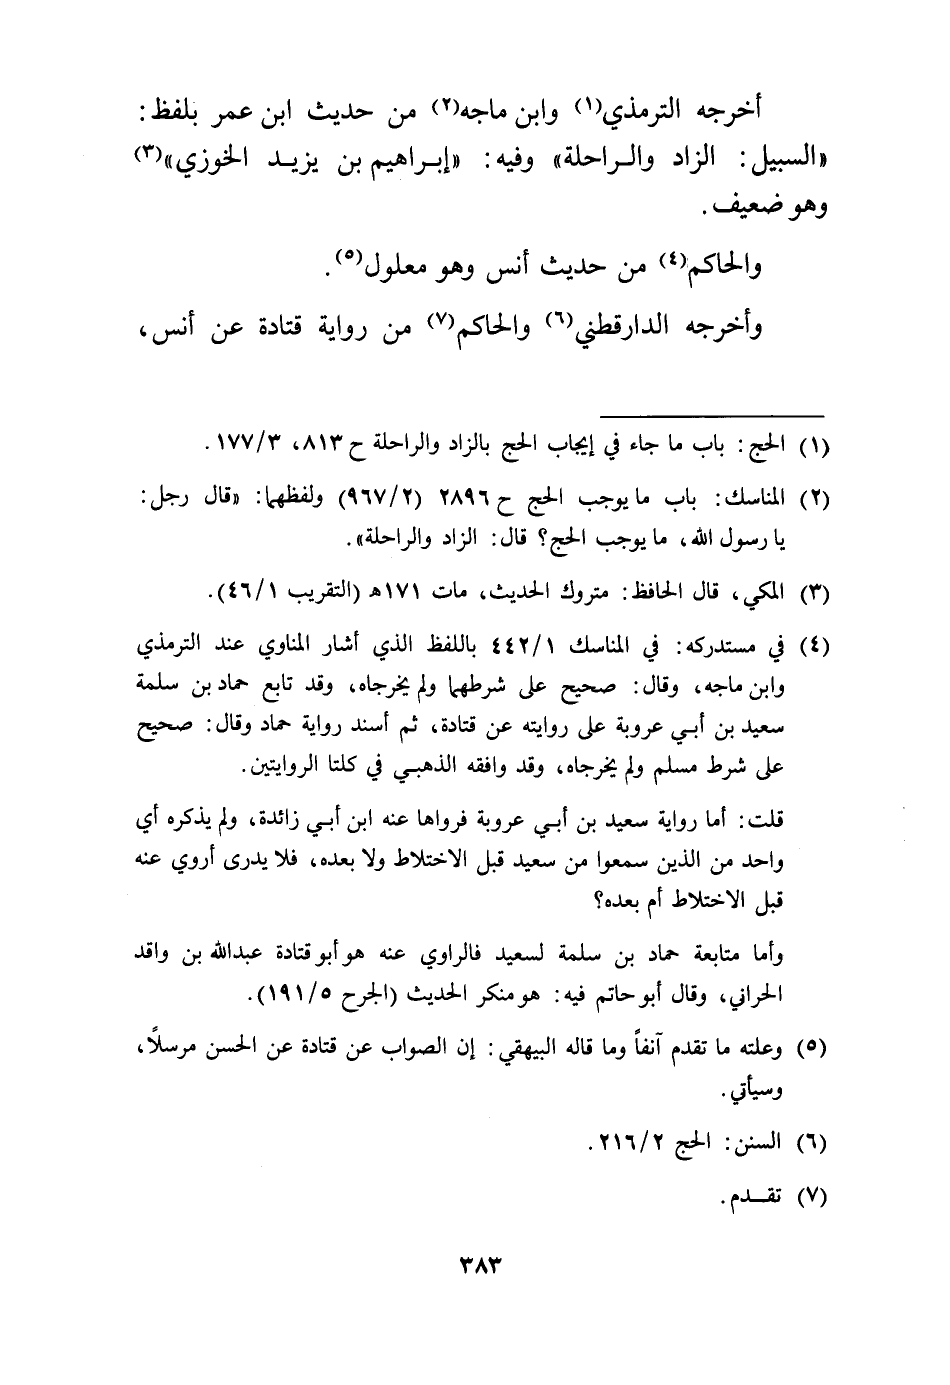 أخرجه الترمذي(١) وابن ماجه(٢) من حديث ابن عمر بلفظ:
«السبيل: الزاد والراحلة» وفيه: «إبراهيم بن يزيد الخوزي»(٣)
وهو ضعيف.
والحاكم(٤) من حديث أنس وهو معلول(٥).
وأخرجه الدارقطني(٦) والحاكم(٧) من رواية قتادة عن أنس،
(١) الحج: باب ما جاء في إيجاب الحج بالزاد والراحلة ح ٨١٣، ١٧٧/٣.
(٢) المناسك: باب ما يوجب الحج ح ٢٨٩٦ (٩٦٧/٢) ولفظهما: «قال رجل:
يا رسول الله، ما يوجب الحج؟ قال: الزاد والراحلة».
(٣) المكي، قال الحافظ: متروك الحديث، مات ١٧١هـ (التقريب ٤٦/١).
(٤) في مستدركه: في المناسك ٤٤٢/١ باللفظ الذي أشار المناوي عند الترمذي
وابن ماجه، وقال: صحيح على شرطهما ولم يخرجاه، وقد تابع حماد بن سلمة
سعيد بن أبي عروبة على روايته عن قتادة، ثم أسند رواية حماد وقال: صحيح
على شرط مسلم ولم يخرجاه، وقد وافقه الذهبي في كلتا الروايتين.
قلت: أما رواية سعيد بن أبي عروبة فرواها عنه ابن أبي زائدة، ولم يذكره أي
واحد من الذين سمعوا من سعيد قبل الاختلاط ولا بعده، فلا يدرى أروي عنه
قبل الاختلاط أم بعده؟
وأما متابعة حماد بن سلمة لسعيد فالراوي عنه هو أبو قتادة عبدالله بن واقد
الحراني، وقال أبو حاتم فيه: هو منكر الحديث (الجرح ١٩١/٥).
(٥) وعلته ما تقدم آنفاً وما قاله البيهقي: إن الصواب عن قتادة عن الحسن مرسلاً،
وسيأتي.
(٦) السنن: الحج ٢١٦/٢.
(٧) تقدم.
٣٨٣